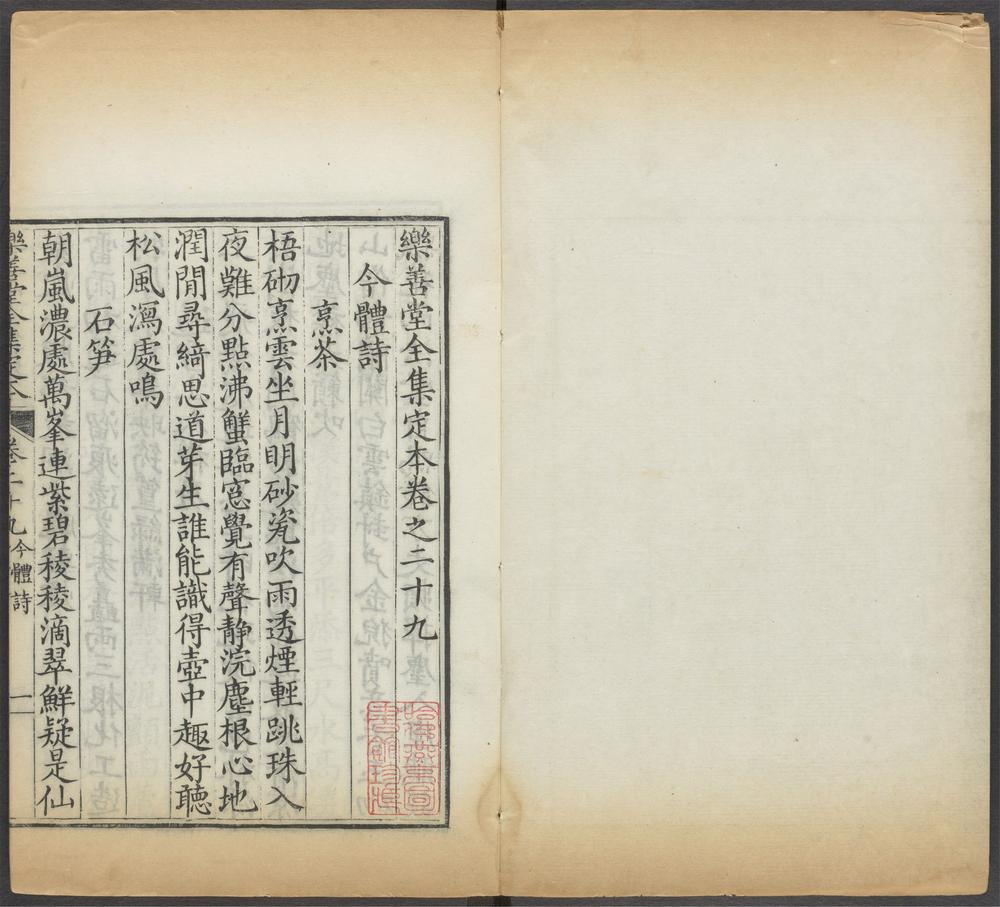 樂善堂全集定本卷之二十九
今體詩
烹茶
梧砌烹雲坐月明砂瓷吹雨透煙輕跳珠入
夜難分點沸蟹臨窓覺有聲静浣塵根心地
潤閒尋綺思道芽生誰能識得壺中趣好聽
松風瀉處鳴
石笋
朝嵐濃處萬峯連紫碧稜稜滴翠鮮疑是仙
樂善堂全集定本
卷二十九今體詩
一
哈佛燕京圖
書館珍藏